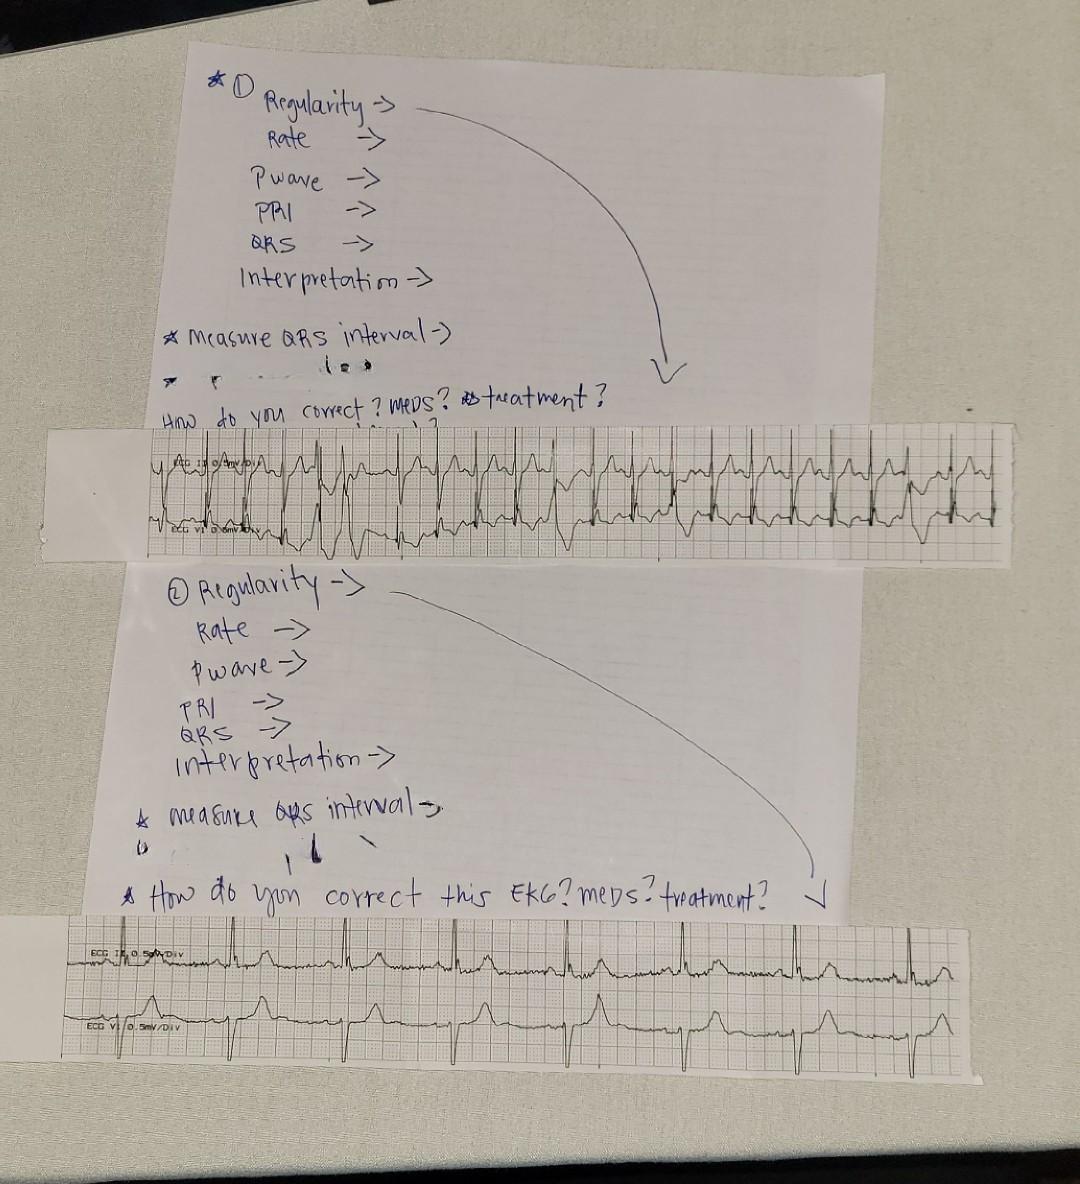 * ① Regularity ->
Rate ->
Pwave ->
PRI ->
QRS ->
Interpretation ->
* measure QRS interval ->
How do you correct? MEDS? treatment?
ECG II 0.5mV/Div
ECG V1 0.5mV/Div
② Regularity ->
Rate ->
Pwave ->
PRI ->
QRS ->
Interpretation ->
* measure QRS interval ->
* How do you correct this EKG? MEDS? treatment?
ECG II 0.5mV/Div
ECG V1 0.5mV/Div